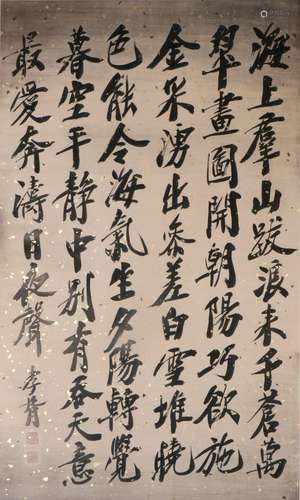 海上羣山跋浪来千蒼萬
翠畫圖開朝陽巧欲施
金采湧出参差白雪堆曉
色能令海氣生夕陽轉覺
暮空平靜中別有吞天意
最愛奔濤日夜聲
孝胥